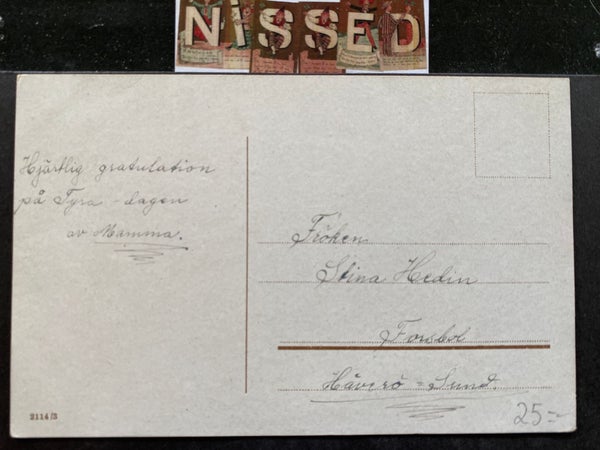 NISSED
Hjärtlig gratulation
på Tyra-dagen
av Mamma.
Fröken
Stina Hedin
Forsbol
Häverö=Sund.
2114/3
25:-